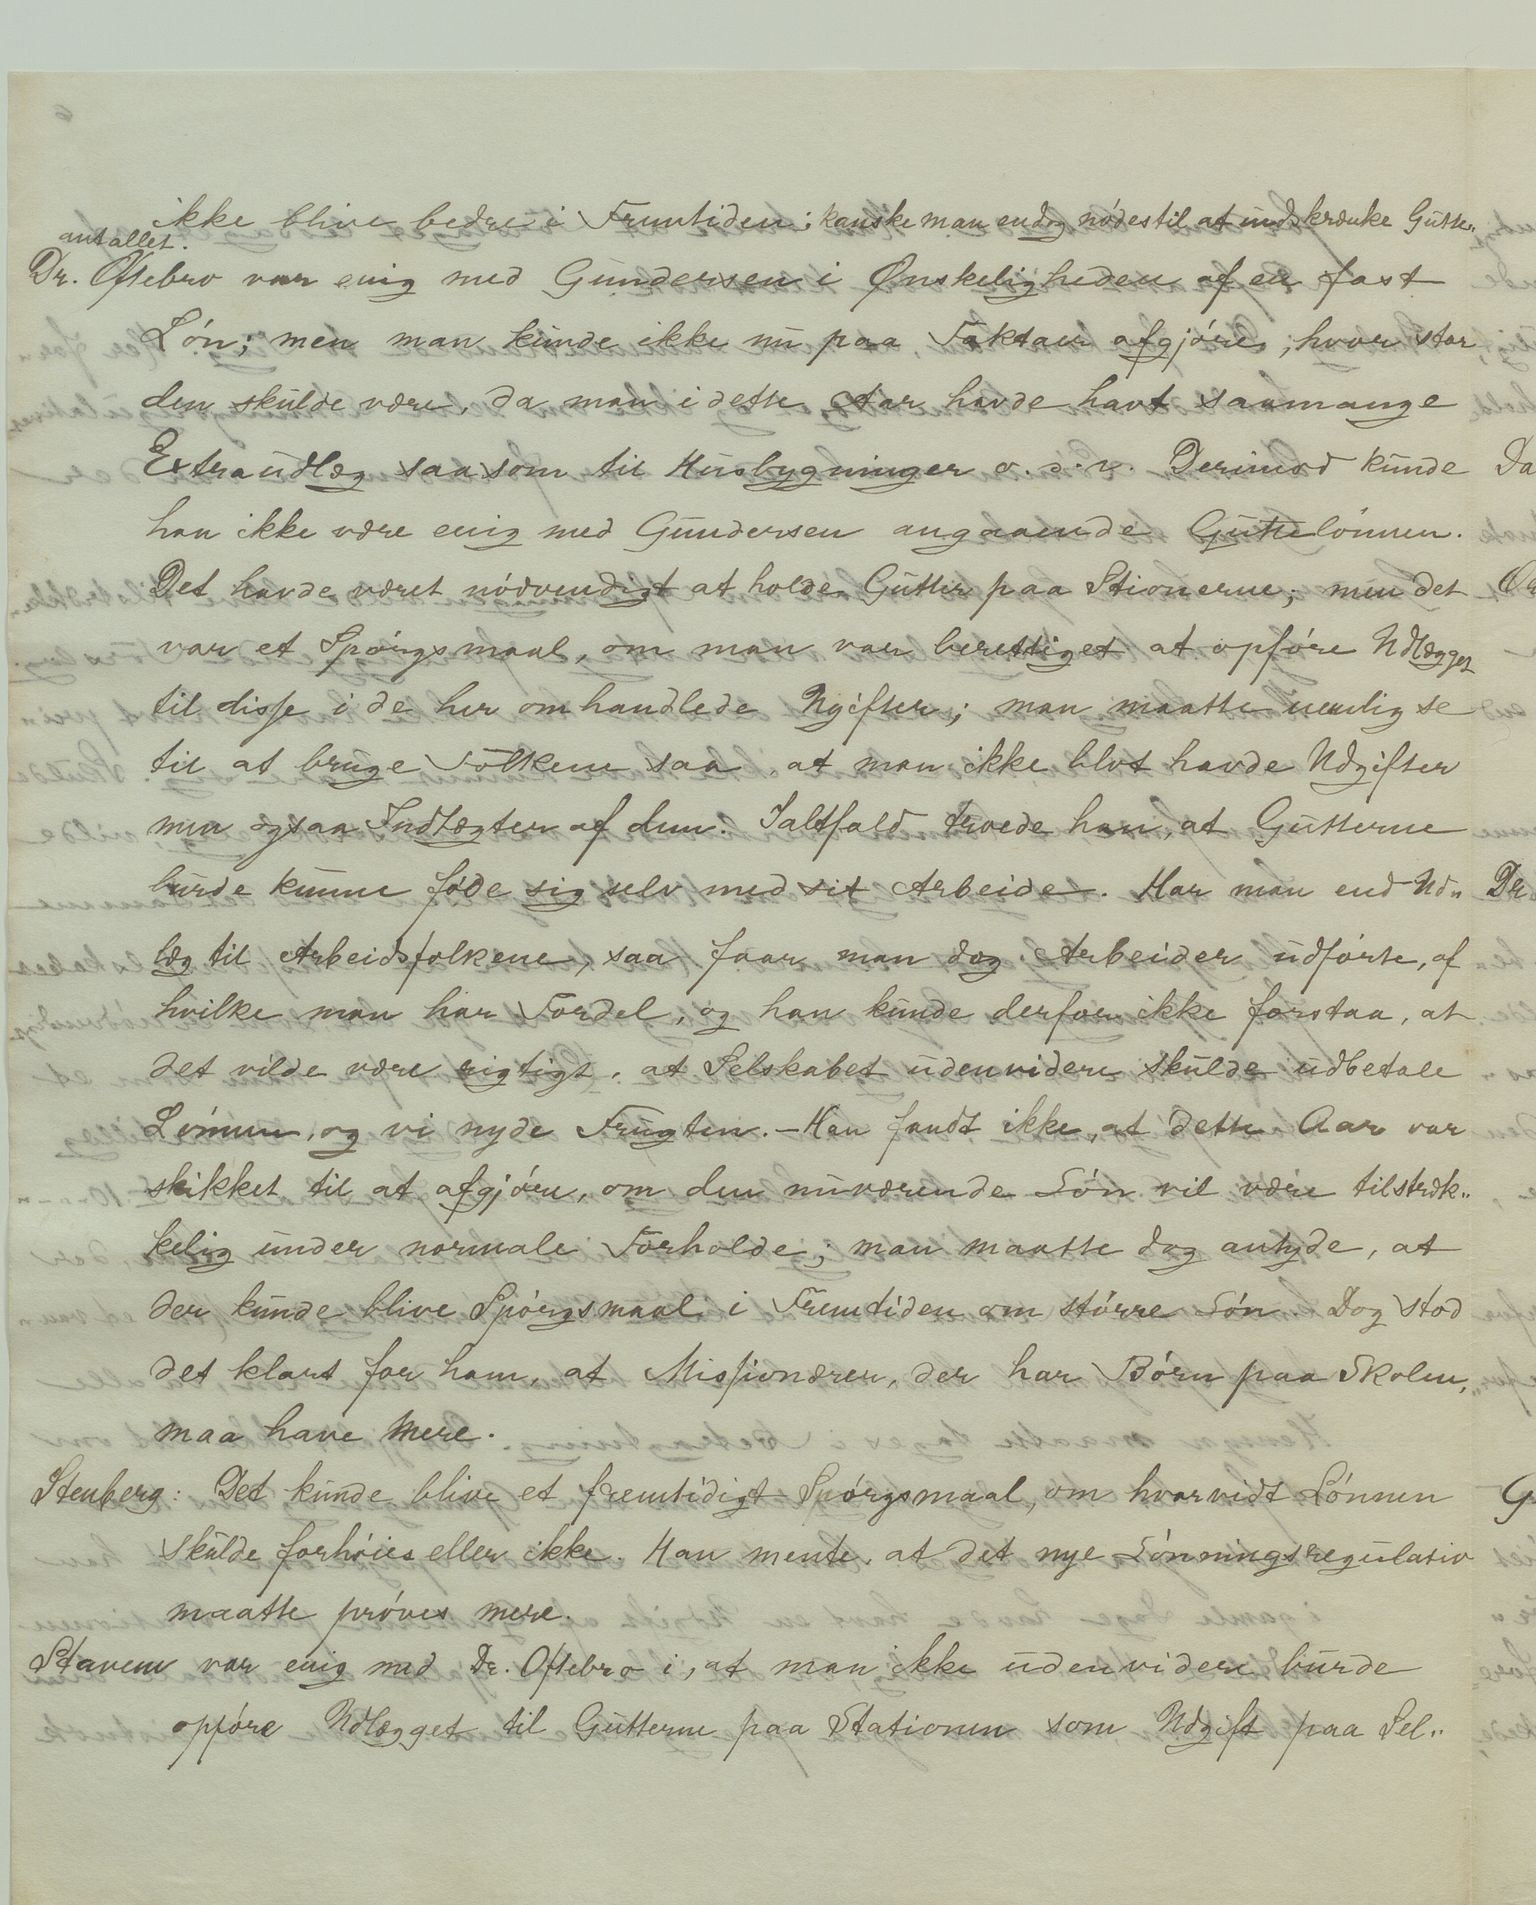 ikke blive bedre i Fremtiden; kanske man endog nødes til at indskrænke Gutte„
antallet.
Dr. Oftebro var enig med Gundersen i Ønskeligheden af en fast
Løn; men man kunde ikke nu paa Faktaer afgjøre, hvor stor
den skulde være, da man i dette Aar havde havt saamange
Extraudlæg saasom til Husbygninger o. s. v. Derimod kunde
han ikke være enig med Gundersen angaaende Guttelønnen.
Det havde været nødvendigt at holde Gutter paa Stionerne; men det
var et Spørgsmaal, om man var berettiget at opføre Udlægget
til disse i de her omhandlede Ugifter; man maatte nemlig se
til at bruge Folkene saa, at man ikke blot havde Udgifter
men ogsaa Indtægter af dem. Ialtfald troede han, at Gutterne
burde kunne føde sig selv med sit Arbeide. Har man end Ud„
læg til Arbeidsfolkene, saa faar man dog Arbeider udførte, af
hvilke man har Fordel, og han kunde derfor ikke forstaa, at
det vilde være rigtigt, at Selskabet uden videre skulde udbetale
Lønnen, og vi nyde Frugten. – Han fandt ikke, at dette Aar var
skikket til at afgjøre, om den nuværende Løn vil være tilstræk„
kelig under normale Forholde; man maatte dog antyde, at
der kunde blive Spørgsmaal i Fremtiden om større Løn. Dog stod
det klart for ham, at Missionærer, der har Børn paa Skolen,
maa have mere.
Stenberg: Det kunde blive et fremtidigt Spørgsmaal, om hvorvidt Lønnen
skulde forhøies eller ikke. Han mente, at det nye Lønningsregulativ
maatte prøves mere.
Stavem var enig med Dr. Oftebro i, at man ikke uden videre burde
opføre Udlægget til Gutterne paa Stationen som Udgift paa Sel„